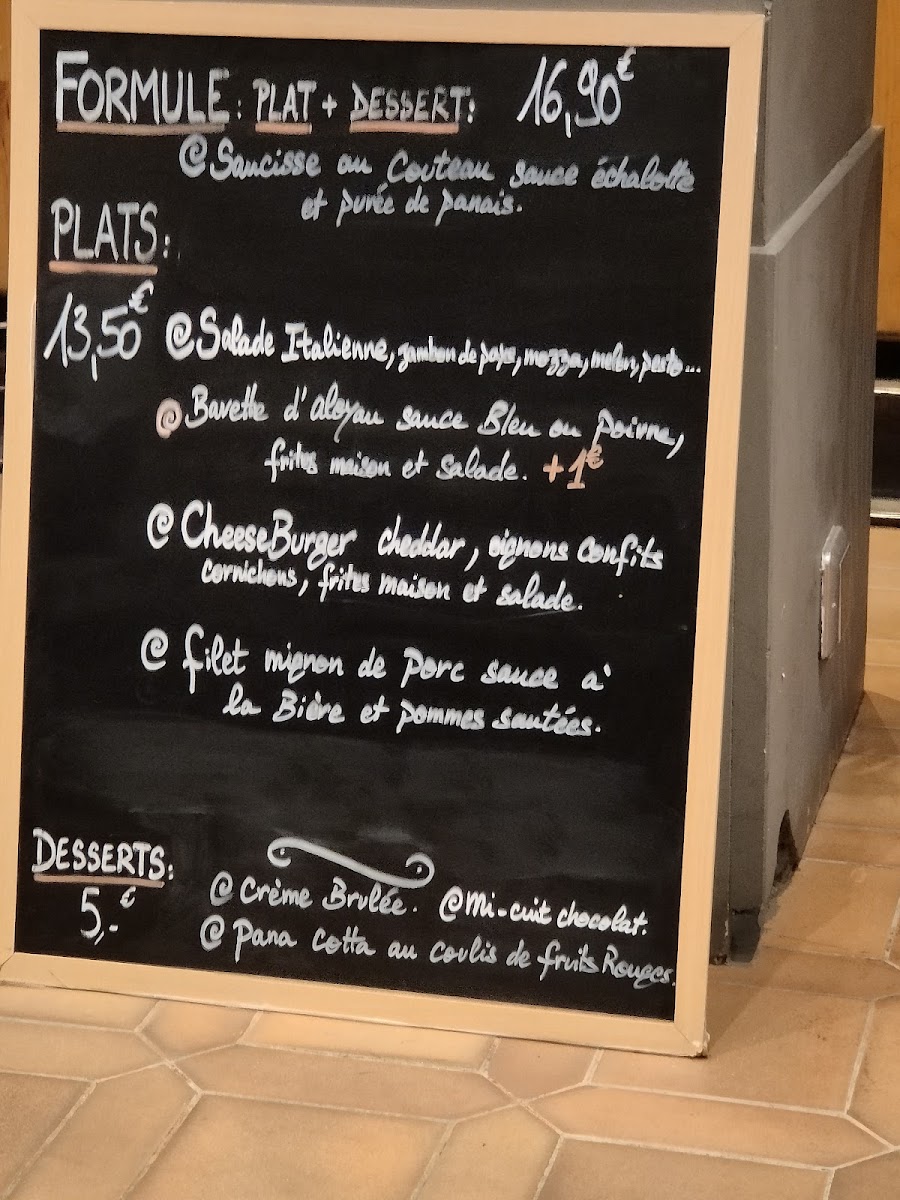 FORMULE: PLAT + DESSERT: 16,90€
@ Saucisse au Couteau sauce échalotte
et purée de panais.
PLATS:
13,50€ @ Salade Italienne, jambon de pays, mozza, melon, pesto...
@ Bavette d'aloyau sauce Bleu ou poivre,
frites maison et salade. +1€
@ CheeseBurger cheddar, oignons confits
cornichons, frites maison et salade.
@ filet mignon de Porc sauce à
la Bière et pommes sautées.
DESSERTS:
5,-€
@ Crème Brulée. @ Mi-cuit chocolat.
@ Pana cotta au coulis de fruits Rouges.